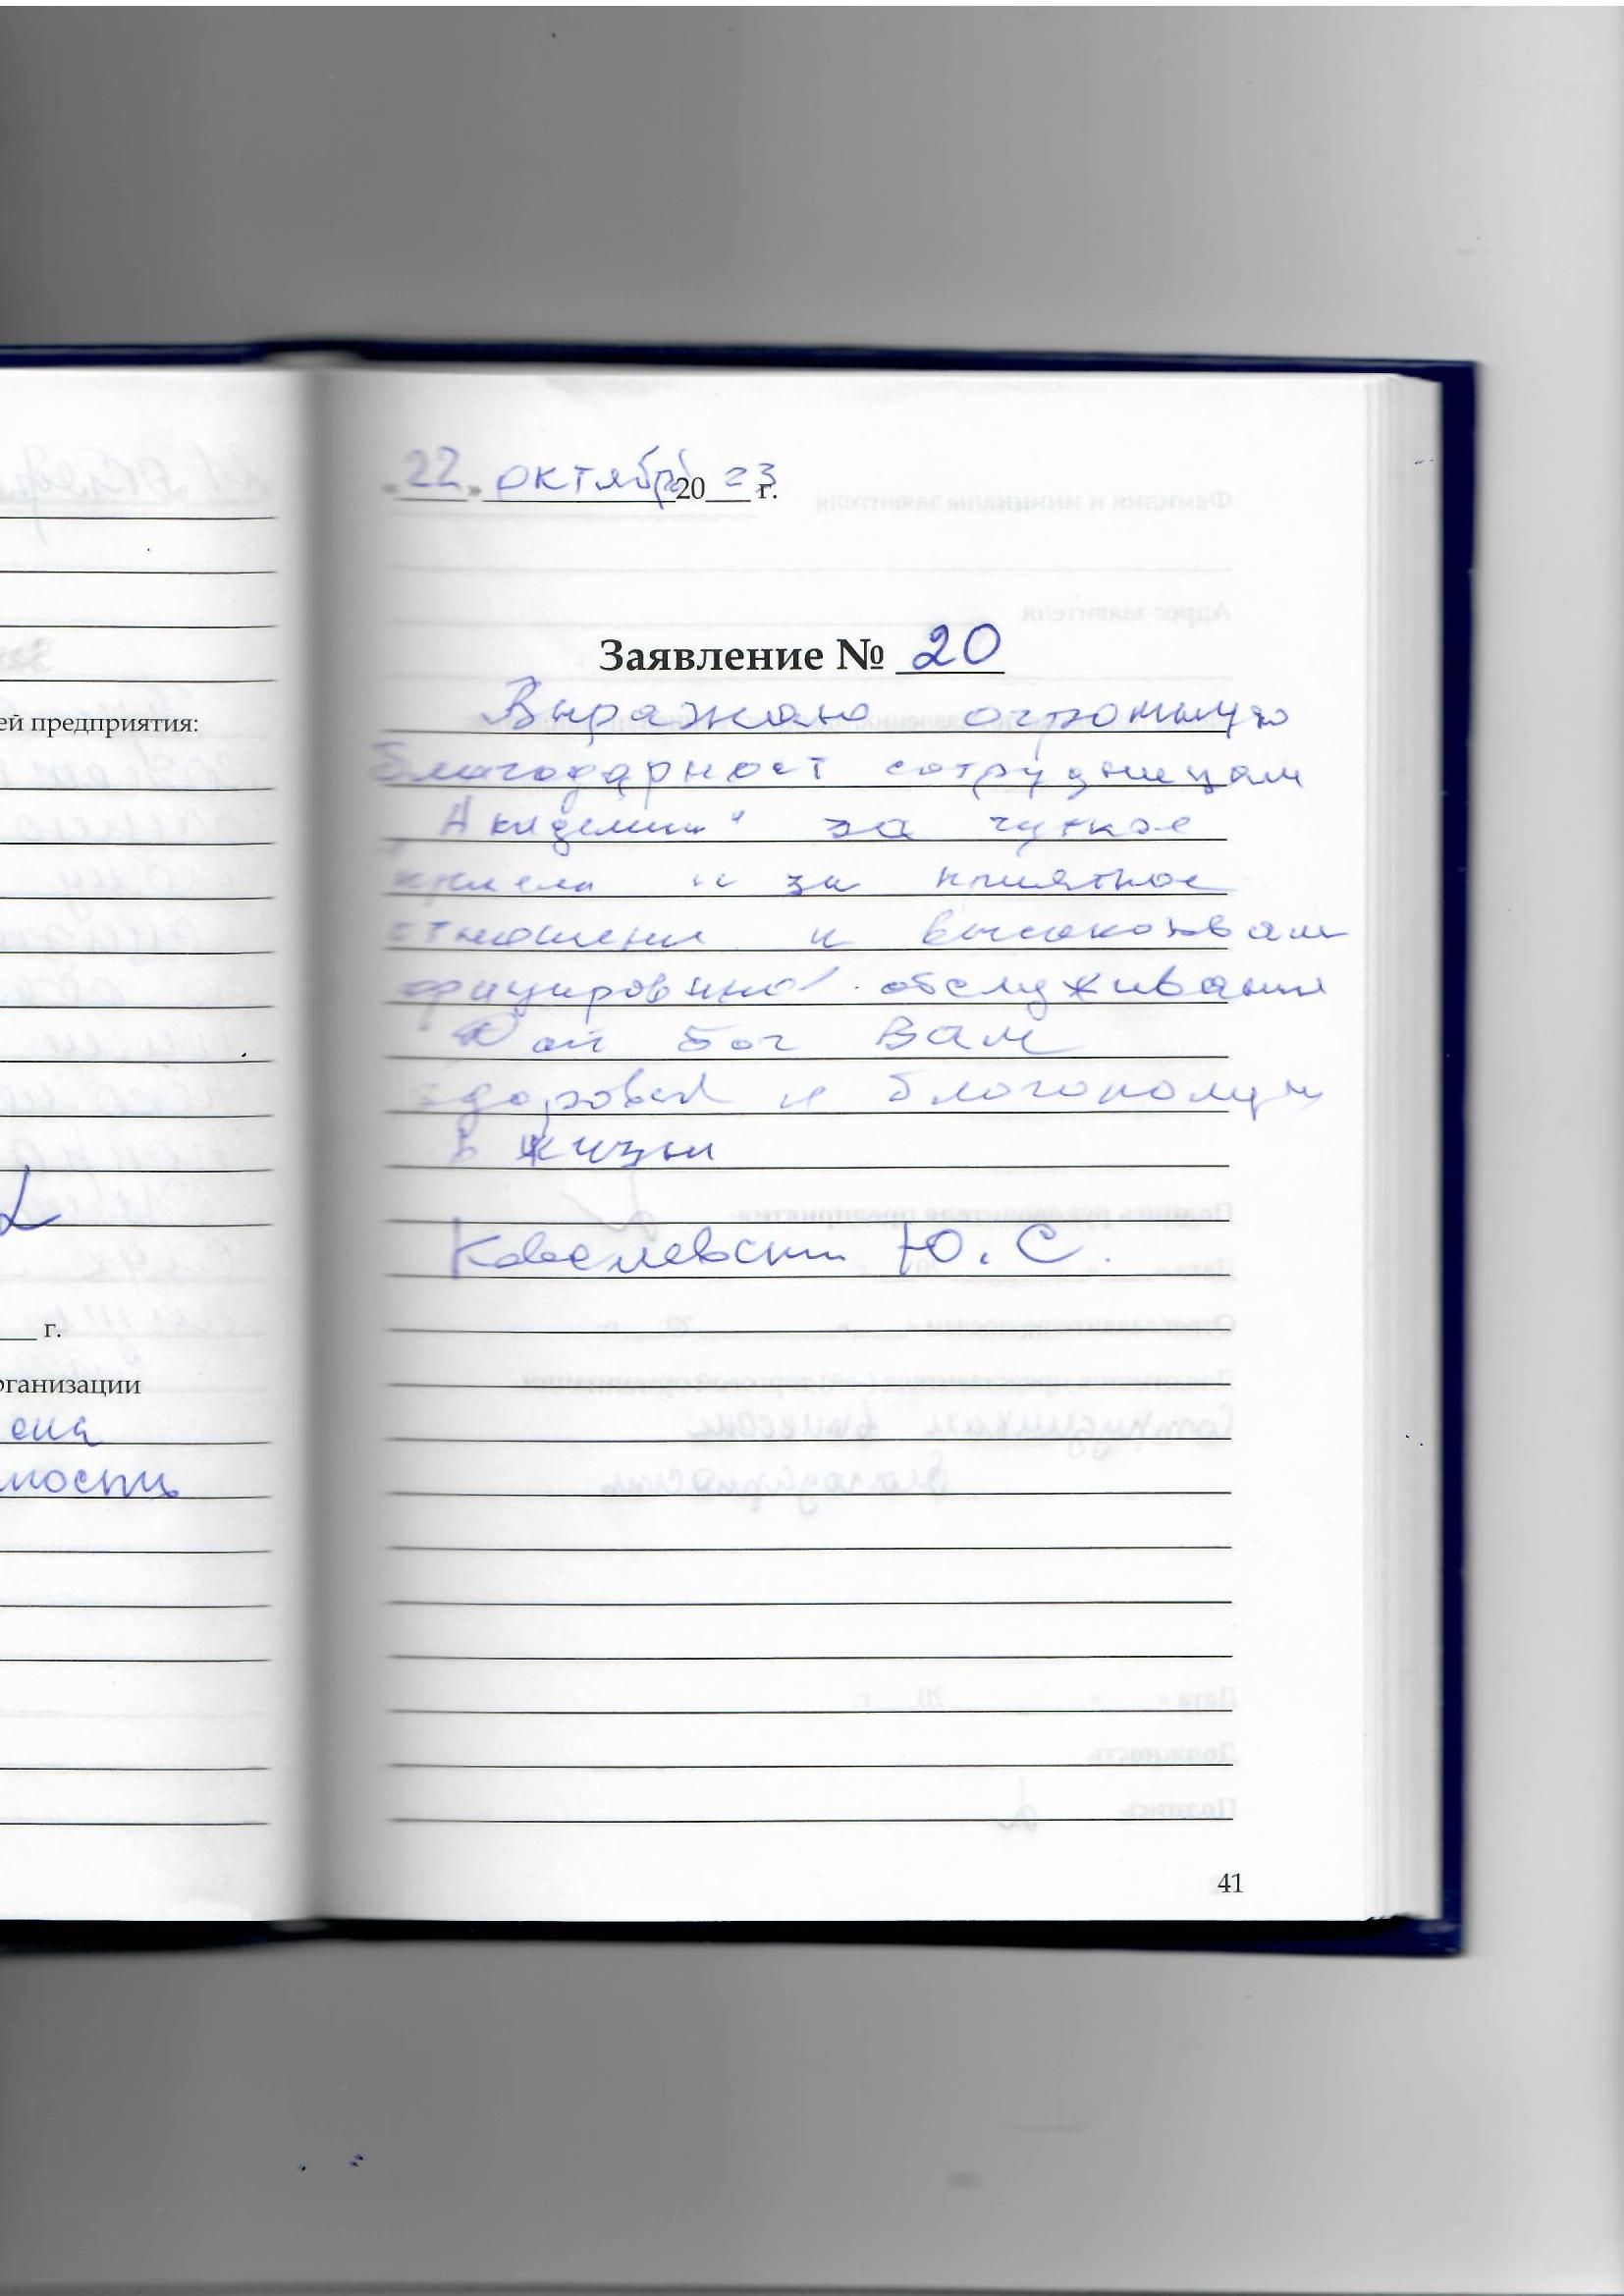 ей предприятия:
г.
рганизации
ена
ность
«22» октябрь 2023 г.
Заявление № 20
Выражаю огромную
благодарност сотрудницам
"Академии" за чуткое
и за приятное
отношени и высококвали
фицированное обслуживани
Дай Бог Вам
здоровья и благополучи
в жизни
Ковалевский Ю. С.
41